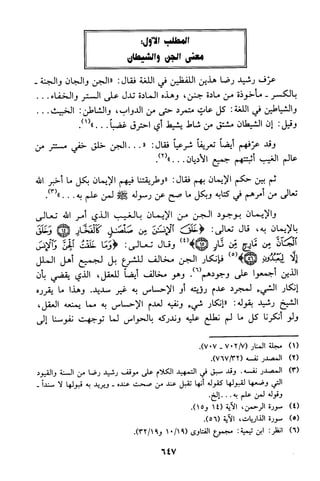 المطلب الأول:
معنى الجن والشيطان
عرّف رشيد رضا هذين اللفظين في اللغة فقال: «الجن والجان والجنة ـ
بالكسر ـ مأخوذة من مادة جنن، وهذه المادة تدل على الستر والخفاء...
والشياطين في اللغة: كل عاتٍ متمرد حتى من الدواب، والشاطن: الخبيث...
وقيل: إن الشيطان مشتق من شاط يشيط أي احترق غضباً...»(١).
وقد عرّفهم أيضاً تعريفاً شرعياً فقال: «...الجن خلق خفي مستتر من
عالم الغيب أثبتهم جميع الأديان...»(٢).
ثم بين حكم الإيمان بهم فقال: «وطريقتنا فيهم الإيمان بكل ما أخبر الله
تعالى من أمرهم في كتابه وبكل ما صح عن رسوله ﷺ لمن علم به...»(٣).
والإيمان بوجود الجن من الإيمان بالغيب الذي أمر الله تعالى
بالإيمان به، قال تعالى: ﴿خَلَقَ ٱلْإِنسَٰنَ مِن صَلْصَٰلٍ كَٱلْفَخَّارِ ﴿١٤﴾ وَخَلَقَ
ٱلْجَآنَّ مِن مَّارِجٍ مِّن نَّارٍ ﴿١٥﴾﴾(٤) وقال تعالى: ﴿وَمَا خَلَقْتُ ٱلْجِنَّ وَٱلْإِنسَ
إِلَّا لِيَعْبُدُونِ ﴿٥٦﴾﴾(٥) فإنكار الجن مخالف للشرع بل لجميع أهل الملل
الذين أجمعوا على وجودهم(٦). وهو مخالف أيضاً للعقل، الذي يقضي بأن
إنكار الشيء لمجرد عدم رؤيته أو الإحساس به غير سديد. وهذا ما يقرره
الشيخ رشيد بقوله: «إنكار شيء ونفيه لعدم الإحساس به مما يمنعه العقل،
ولو أنكرنا كل ما لم نطلع عليه وندركه بالحواس لما توجهت نفوسنا إلى
(١) مجلة المنار (٧/ ٧٠٢ ـ ٧٠٧).
(٢) المصدر نفسه (٣٢/ ٧٦٧).
(٣) المصدر نفسه. وقد سبق في التمهيد الكلام على موقف رشيد رضا من السنة والقيود
التي وضعها لقبولها كقوله أنها تقبل عند من صحت عنده ـ ويريد به قبولها لا سنداً ـ
وقوله لمن علم به...إلخ.
(٤) سورة الرحمن، الآية (١٤ و١٥).
(٥) سورة الذاريات، الآية (٥٦).
(٦) انظر: ابن تيمية: مجموع الفتاوى (١٩/ ١٠ و١٩/ ٣٢).
٦٤٧